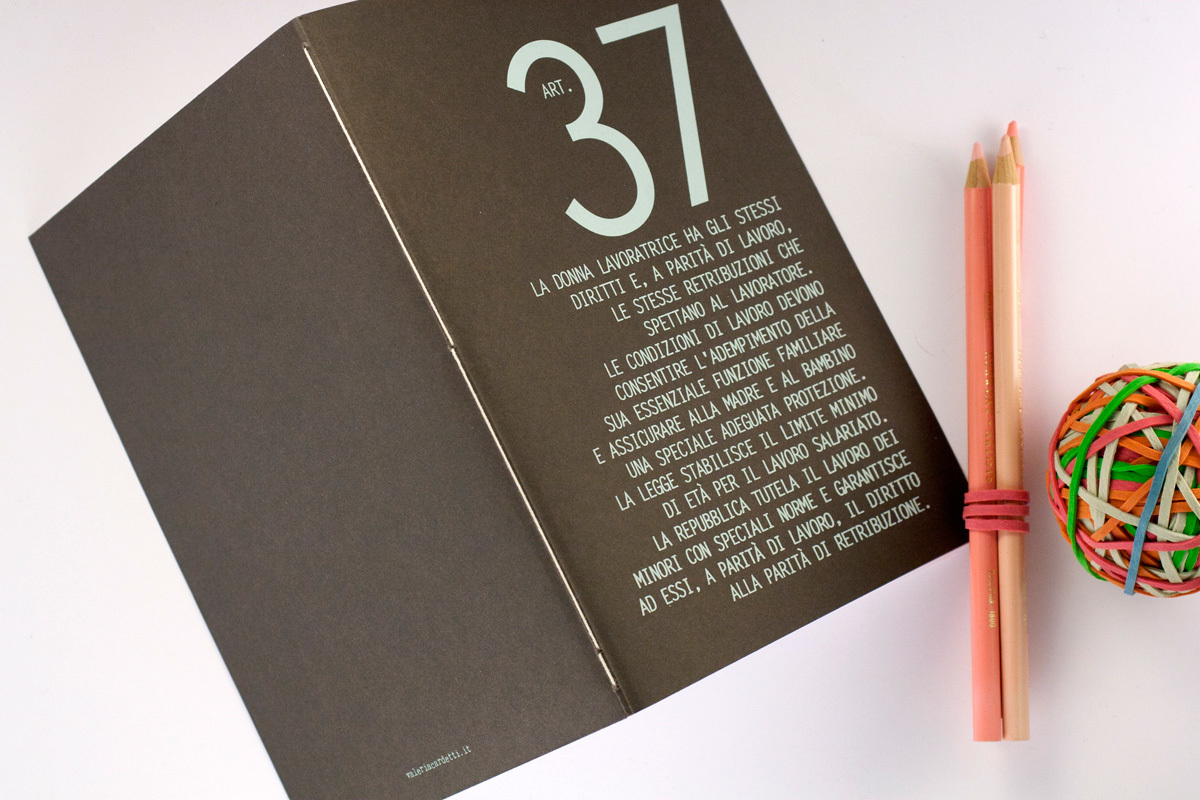 ART.
37
LA DONNA LAVORATRICE HA GLI STESSI
DIRITTI E, A PARITÀ DI LAVORO,
LE STESSE RETRIBUZIONI CHE
SPETTANO AL LAVORATORE.
LE CONDIZIONI DI LAVORO DEVONO
CONSENTIRE L'ADEMPIMENTO DELLA
SUA ESSENZIALE FUNZIONE FAMILIARE
E ASSICURARE ALLA MADRE E AL BAMBINO
UNA SPECIALE ADEGUATA PROTEZIONE.
LA LEGGE STABILISCE IL LIMITE MINIMO
DI ETÀ PER IL LAVORO SALARIATO.
LA REPUBBLICA TUTELA IL LAVORO DEI
MINORI CON SPECIALI NORME E GARANTISCE
AD ESSI, A PARITÀ DI LAVORO, IL DIRITTO
ALLA PARITÀ DI RETRIBUZIONE.
valeriacardetti.it